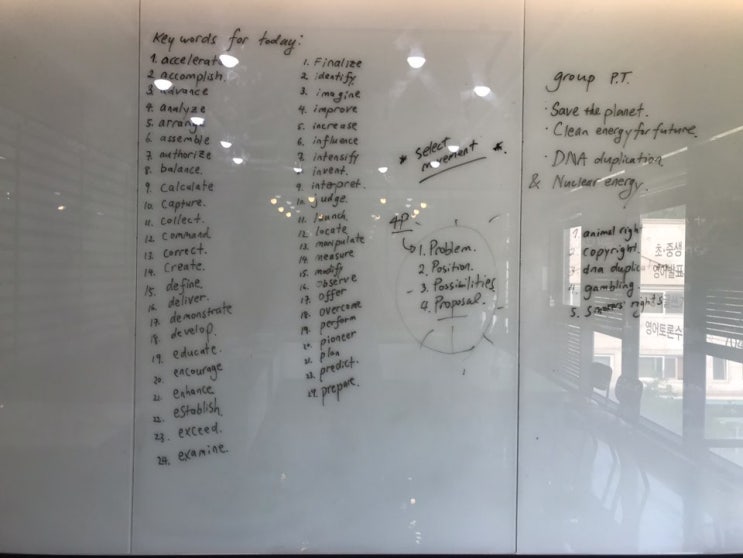 Key words for today:
1. accelerate
2. accomplish.
3. advance
4. analyze
5. arrange
6. assemble
7. authorize
8. balance.
9. Calculate
10. Capture.
11. collect.
12. Command
13. Correct.
14. Create.
15. define.
16. deliver.
17. demonstrate
18. develop.
19. educate.
20. encourage
21. enhance
22. establish
23. exceed.
24. examine.
1. Finalize
2. identify
3. imagine
4. improve
5. increase
6. influence
7. intensify
8. invent.
9. interpret.
10. judge.
11. launch
12. locate
13. manipulate
14. measure
15. modify
16. observe
17. offer
18. overcome
19. perform
20. pioneer
21. plan
predict.
24. prepare.
* Select *.
movement
4P
1. Problem.
2. Position.
3. Possibilities
4. Proposal.
group P.T.
· Save the planet.
· Clean energy for future.
· DNA duplication
& Nuclear energy.
1. animal right
2. copyright.
3. dna duplicat
4. gambling.
5. Smokers' rights
초·중생
영어토론수